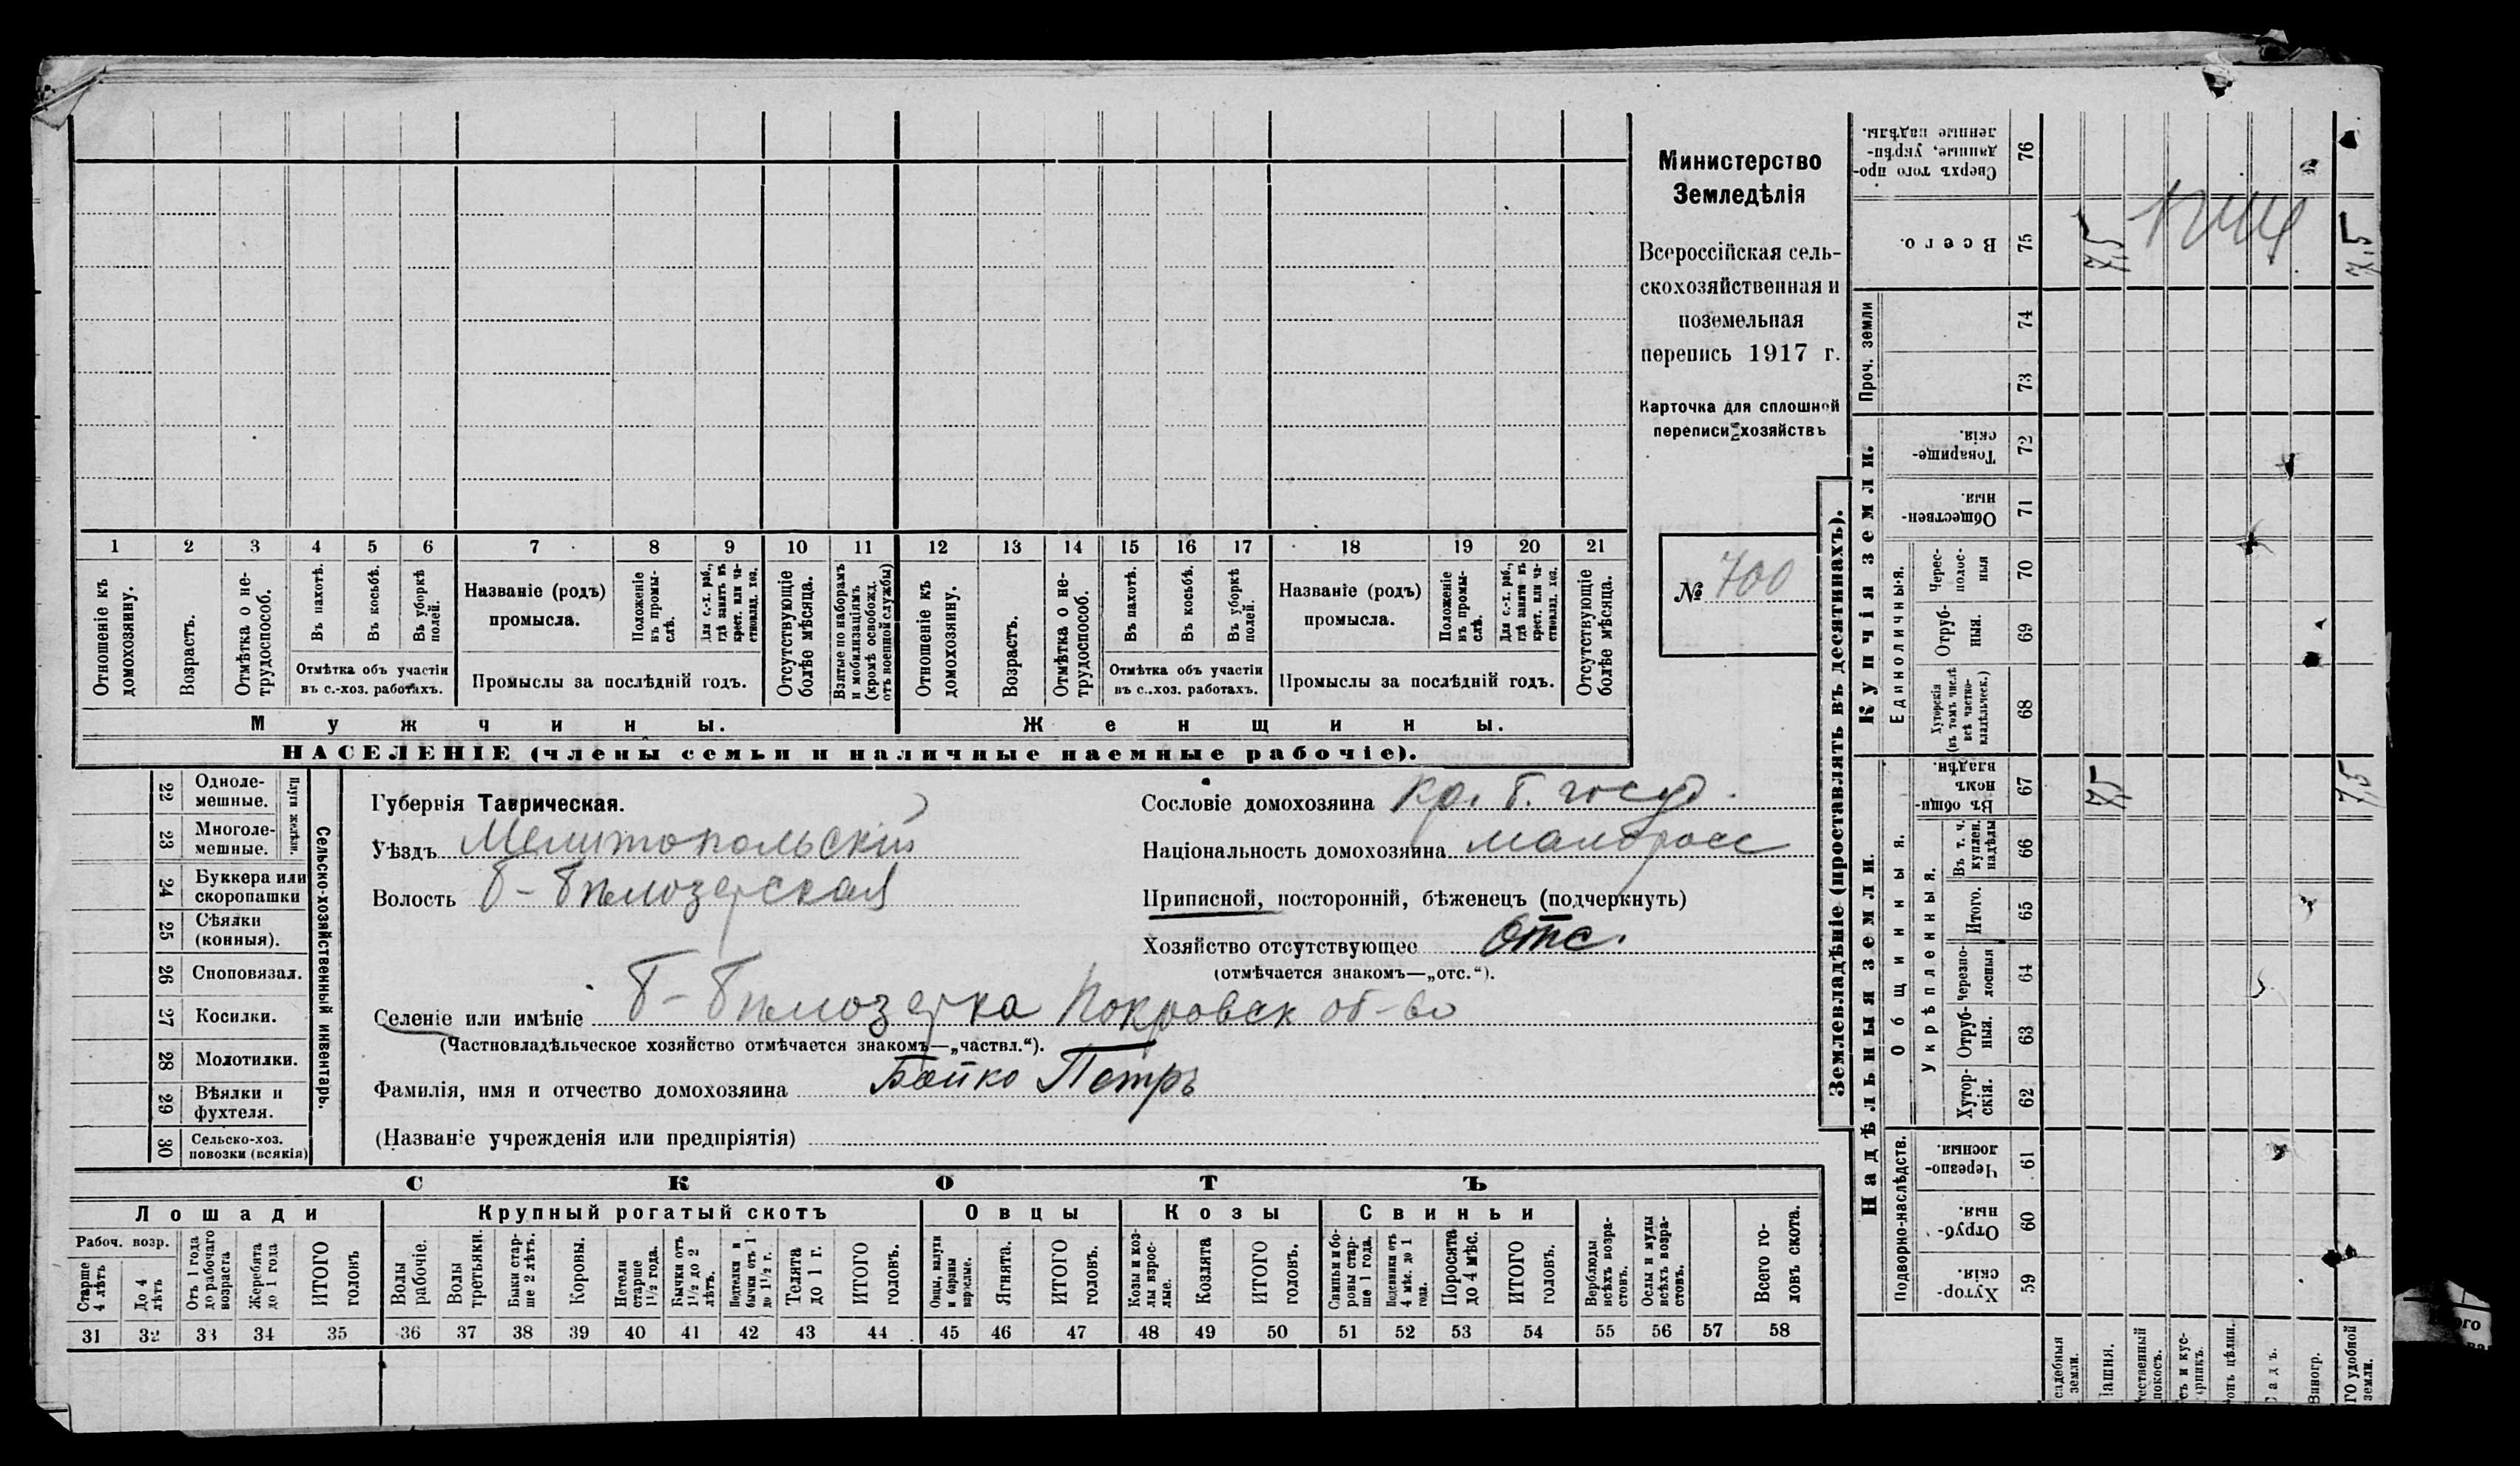 Министерство
Земледѣлія
Всероссійская сель-
скохозяйственная и
поземельная
перепись 1917 г.
Карточка для сплошной
переписи хозяйствъ
№ 700
1 2 3 4 5 6 7 8 9 10 11 12 13 14 15 16 17 18 19 20 21
Отношеніе къ домохозяину.
Возрастъ.
Отмѣтка о не-трудоспособ.
Въ пахотѣ.
Въ косьбѣ.
Въ уборкѣ полей.
Отмѣтка объ участіи
въ с.-хоз. работахъ.
Названіе (родъ)
промысла.
Положеніе въ промы-слѣ.
Для с.-х. раб., гдѣ занятъ въ крест. или ча-стновлад. хоз.
Промыслы за послѣдній годъ.
Отсутствующіе болѣе мѣсяца.
Взятые по наборамъ и мобилизаціямъ (кромѣ освобожд. отъ военной службы)
Отношеніе къ домохозяину.
Возрастъ.
Отмѣтка о не-трудоспособ.
Въ пахотѣ.
Въ косьбѣ.
Въ уборкѣ полей.
Отмѣтка объ участіи
въ с.-хоз. работахъ.
Названіе (родъ)
промысла.
Положеніе въ промы-слѣ.
Для с.-х. раб., гдѣ занята въ крест. или ча-стновлад. хоз.
Промыслы за послѣдній годъ.
Отсутствующіе болѣе мѣсяца.
Мужчины.
Женщины.
НАСЕЛЕНІЕ (члены семьи и наличные наемные рабочіе).
Сельско-хозяйственный инвентарь.
Плуги желѣзн.
22 Одноле-мешные.
23 Многоле-мешные.
24 Буккера или скоропашки
25 Сѣялки (конныя).
26 Сноповязал.
27 Косилки.
28 Молотилки.
29 Вѣялки и фухтеля.
30 Сельско-хоз. повозки (всякія)
Губернія Таврическая.
Уѣздъ Мелитопольскій
Волость Б-Бѣлозерская
Сословіе домохозяина кр. б. госуд.
Національность домохозяина малоросс
Приписной, посторонній, бѣженецъ (подчеркнуть)
Хозяйство отсутствующее отс.
(отмѣчается знакомъ—„отс.“).
Селеніе или имѣніе Б-Бѣлозерка Покровск об-во
(Частновладѣльческое хозяйство отмѣчается знакомъ—„частвл.“).
Фамилія, имя и отчество домохозяина Бойко Петръ
(Названіе учрежденія или предпріятія)
СКОТЪ
Лошади
Крупный рогатый скотъ
Овцы
Козы
Свиньи
Рабоч. возр.
Старше 4 лѣтъ
До 4 лѣтъ
Отъ 1 года до рабочаго возраста
Жеребята до 1 года
ИТОГО головъ
Волы рабочіе.
Волы третьяки.
Быки стар-ше 2 лѣтъ.
Коровы.
Нетели старше 1½ года.
Бычки отъ 1½ до 2 лѣтъ.
Подтелки и бычки отъ 1 до 1½ г.
Телята до 1 г.
ИТОГО головъ.
Овцы, валухи и бараны взрослые.
Ягнята.
ИТОГО головъ.
Козы и коз-лы взрос-лые.
Козлята
ИТОГО головъ.
Свиньи и бо-ровы стар-ше 1 года.
Подсвинки отъ 4 мѣс. до 1 года.
Поросята до 4 мѣс.
ИТОГО головъ.
Верблюды всѣхъ возра-стовъ.
Ослы и мулы всѣхъ возра-стовъ.
Всего го-ловъ скота.
31 32 33 34 35 36 37 38 39 40 41 42 43 44 45 46 47 48 49 50 51 52 53 54 55 56 57 58
Землевладѣніе (проставлять въ десятинахъ).
Надѣльныя земли.
Купчія земли.
Проч. земли
Подворно-наслѣдств.
Общинныя.
Укрѣпленныя.
Единоличныя.
Сверхъ того про-данные, укрѣп-ленные надѣлы. 76
Всего. 75 7,5 7,5
74
73
Товарище-скія. 72
Обществен-ныя. 71
Черес-полос-ныя 70
Отруб-ныя. 69
Хуторскія (въ томъ числѣ всѣ частно-владѣльческ.) 68
Въ общи-номъ владѣн. 67 7,5 7,5
Въ т. ч. куплен. надѣлы 66
Итого. 65
Черезпо-лосныя 64
Отруб-ныя. 63
Хутор-скія. 62
Черезпо-лосныя. 61
Отруб-ныя. 60
Хутор-скія. 59
садебныя земли.
Пашня.
тественный покосъ.
съ и кус-рникъ.
онь цѣлин.
Садъ.
Виногр.
ГО удобной земли.